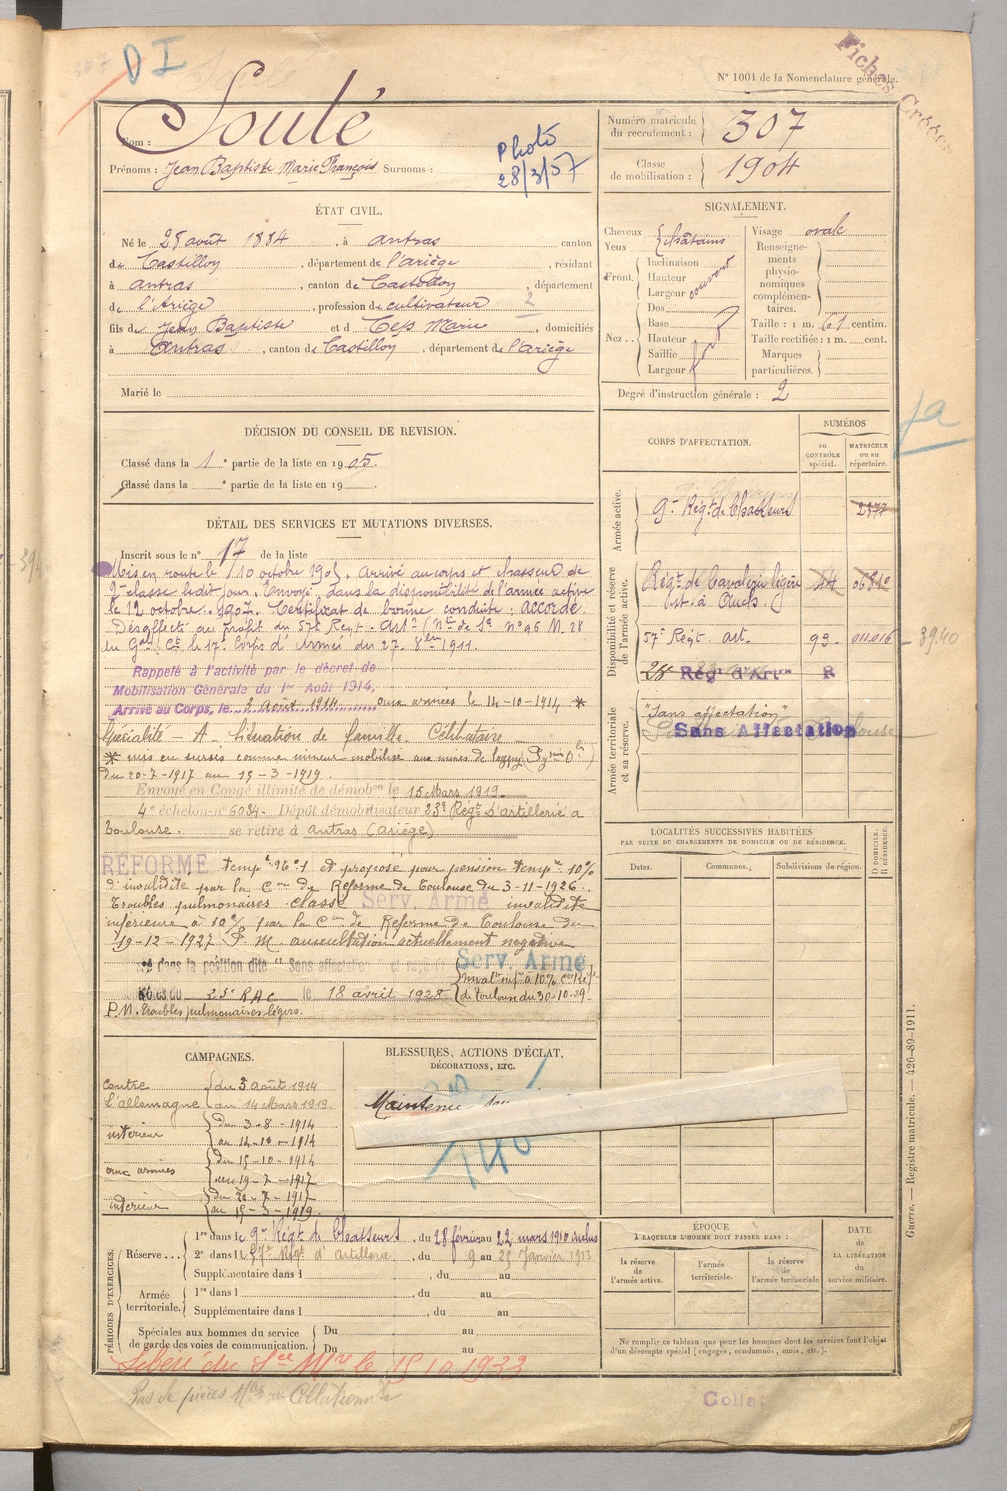 D I
N° 1001 de la Nomenclature générale.
Fiches Créées
Nom : Soulé
Prénoms : Jean Baptiste Marie François Surnoms :
Photo
28/3/57
Numéro matricule du recrutement : 307
Classe de mobilisation : 1904
ÉTAT CIVIL.
Né le 28 août 1884, à antras canton
de Castillon, département de l'ariège, résidant
à antras, canton de Castillon, département
de l'Ariège, profession de cultivateur 2
fils de Jean Baptiste et d Marie, domiciliés
à antras, canton de Castillon, département de l'ariège
Marié le
SIGNALEMENT.
Cheveux
Yeux
châtains
Front.
Inclinaison
Hauteur
Largeur
Nez..
Dos
Base
Hauteur
Saillie
Largeur
Visage ovale
Renseignements physionomiques complémentaires.
Taille : 1 m. 61 centim.
Taille rectifiée : 1 m. cent.
Marques particulières.
Degré d'instruction générale : 2
DÉCISION DU CONSEIL DE REVISION.
Classé dans la 1e partie de la liste en 1905.
Classé dans la e partie de la liste en 19
DÉTAIL DES SERVICES ET MUTATIONS DIVERSES.
Inscrit sous le n° 17 de la liste
Mis en route le 10 octobre 1905. arrivé au corps et chasseur de
2e classe ledit jour. Envoyé dans la disponibilité de l'armée active
le 12 octobre 1907. Certificat de bonne conduite : accordé
Désaffecté au profit du 57e Régt. Artie (Nte de Se n° 96 M. 28
du Gal Ct le 17e Corps d'Armée du 27. 8bre 1911.
Rappelé à l'activité par le décret de
Mobilisation Générale du 1er Août 1914,
Arrivé au Corps, le 3 août 1914 aux armées le 14-10-1914 *
Spécialité - A - Situation de famille Célibataire
* mis en sursis comme mineur mobilisé aux mines de
du 20-7-1917 au 15-3-1919.
Envoyé en Congé illimité de démobon le 15 Mars 1919
4e échelon n° 6084. Dépôt démobilisateur 23e Régt d'artillerie à
Toulouse. se retire à antras (ariège)
RÉFORMÉ tempre n° 1 et proposé pour pension tempre 10%
d'invalidité par la Con de Réforme de Toulouse du 3-11-1926.
Troubles pulmonaires. classé Serv. Armé invalidité
inférieure à 10% par la Con de Réforme de Toulouse du
19-12-1927 P. M. auscultation actuellement négative
dans la position dite "Sans affectation" et rayé Serv. Armé
23e RAC le 18 avril 1928
Invalté infre à 10% Con Réfe
de Toulouse du 30-10-29
P.M. Troubles pulmonaires légers.
CORPS D'AFFECTATION.
NUMÉROS
AU CONTRÔLE spécial.
MATRICULE ou au répertoire.
ja
Armée active.
9e Régt de Chasseurs 2377
Disponibilité et réserve de l'armée active.
Régt de Cavalerie légère
est. à Auch.
57e Régt art. 93 011.016 - 39.40
Régt d'Artie R
Armée territoriale et sa réserve.
"Sans affectation"
Sans Affectation
LOCALITÉS SUCCESSIVES HABITÉES
PAR SUITE DE CHANGEMENTS DE DOMICILE OU DE RÉSIDENCE.
Dates.
Communes.
Subdivisions de région.
D DOMICILE. R RÉSIDENCE.
CAMPAGNES.
contre l'allemagne
du 3 août 1914
au 14 Mars 1919.
intérieur
du 3-8-1914
au 14-10-1914
aux armées
du 15-10-1914
au 19-7-1917
intérieur
du 20-7-1917
au 15-3-1919.
BLESSURES, ACTIONS D'ÉCLAT,
DÉCORATIONS, ETC.
Maintenu
PÉRIODES D'EXERCICES.
Réserve...
1re dans le 9e Régt de Chasseurs, du 28 février au 22 mars 1910 inclus
2e dans le 57e Régt d'Artillerie, du 9 au 25 Janvier 1913
Supplémentaire dans l , du au
Armée territoriale.
1re dans l , du au
Supplémentaire dans l , du au
Spéciales aux hommes du service
de garde des voies de communication.
Du au
Du au
ÉPOQUE
À LAQUELLE L'HOMME DOIT PASSER DANS :
la réserve de l'armée active.
l'armée territoriale.
la réserve de l'armée territoriale
DATE
DE LA LIBÉRATION
du service militaire.
Ne remplir ce tableau que pour les hommes dont les services font l'objet
d'un décompte spécial (engagés, condamnés, omis, etc.).
Guerre. — Registre matricule. — 426-89-1911.
Libéré du Sce Mre le 15 10 1933
Pas de pièces
Collat